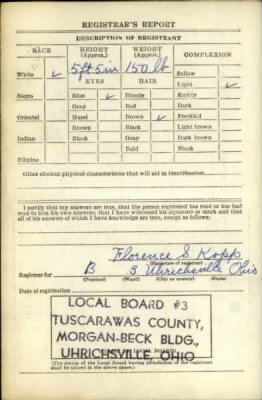 REGISTRAR'S REPORT
DESCRIPTION OF REGISTRANT
RACE HEIGHT (Approx.) WEIGHT (Approx.) COMPLEXION
5 ft 5 in 150 lb
White ✓ EYES HAIR Sallow
Light ✓
Negro Blue ✓ Blonde Ruddy
Gray Red Dark
Oriental Hazel Brown ✓ Freckled
Brown Black Light brown
Indian Black Gray Dark brown
Bald Black
Filipino
Other obvious physical characteristics that will aid in identification
I certify that my answers are true; that the person registered has read or has had
read to him his own answers; that I have witnessed his signature or mark and that
all of his answers of which I have knowledge are true, except as follows:
Florence S Kopp
(Signature of registrar)
Registrar for B 3 Uhrichsville Ohio
(Precinct) (Ward) (City or county) (State)
Date of registration
LOCAL BOARD #3
TUSCARAWAS COUNTY,
MORGAN-BECK BLDG.,
UHRICHSVILLE, OHIO
(The stamp of the Local Board having jurisdiction of the registrant
shall be placed in the above space.)